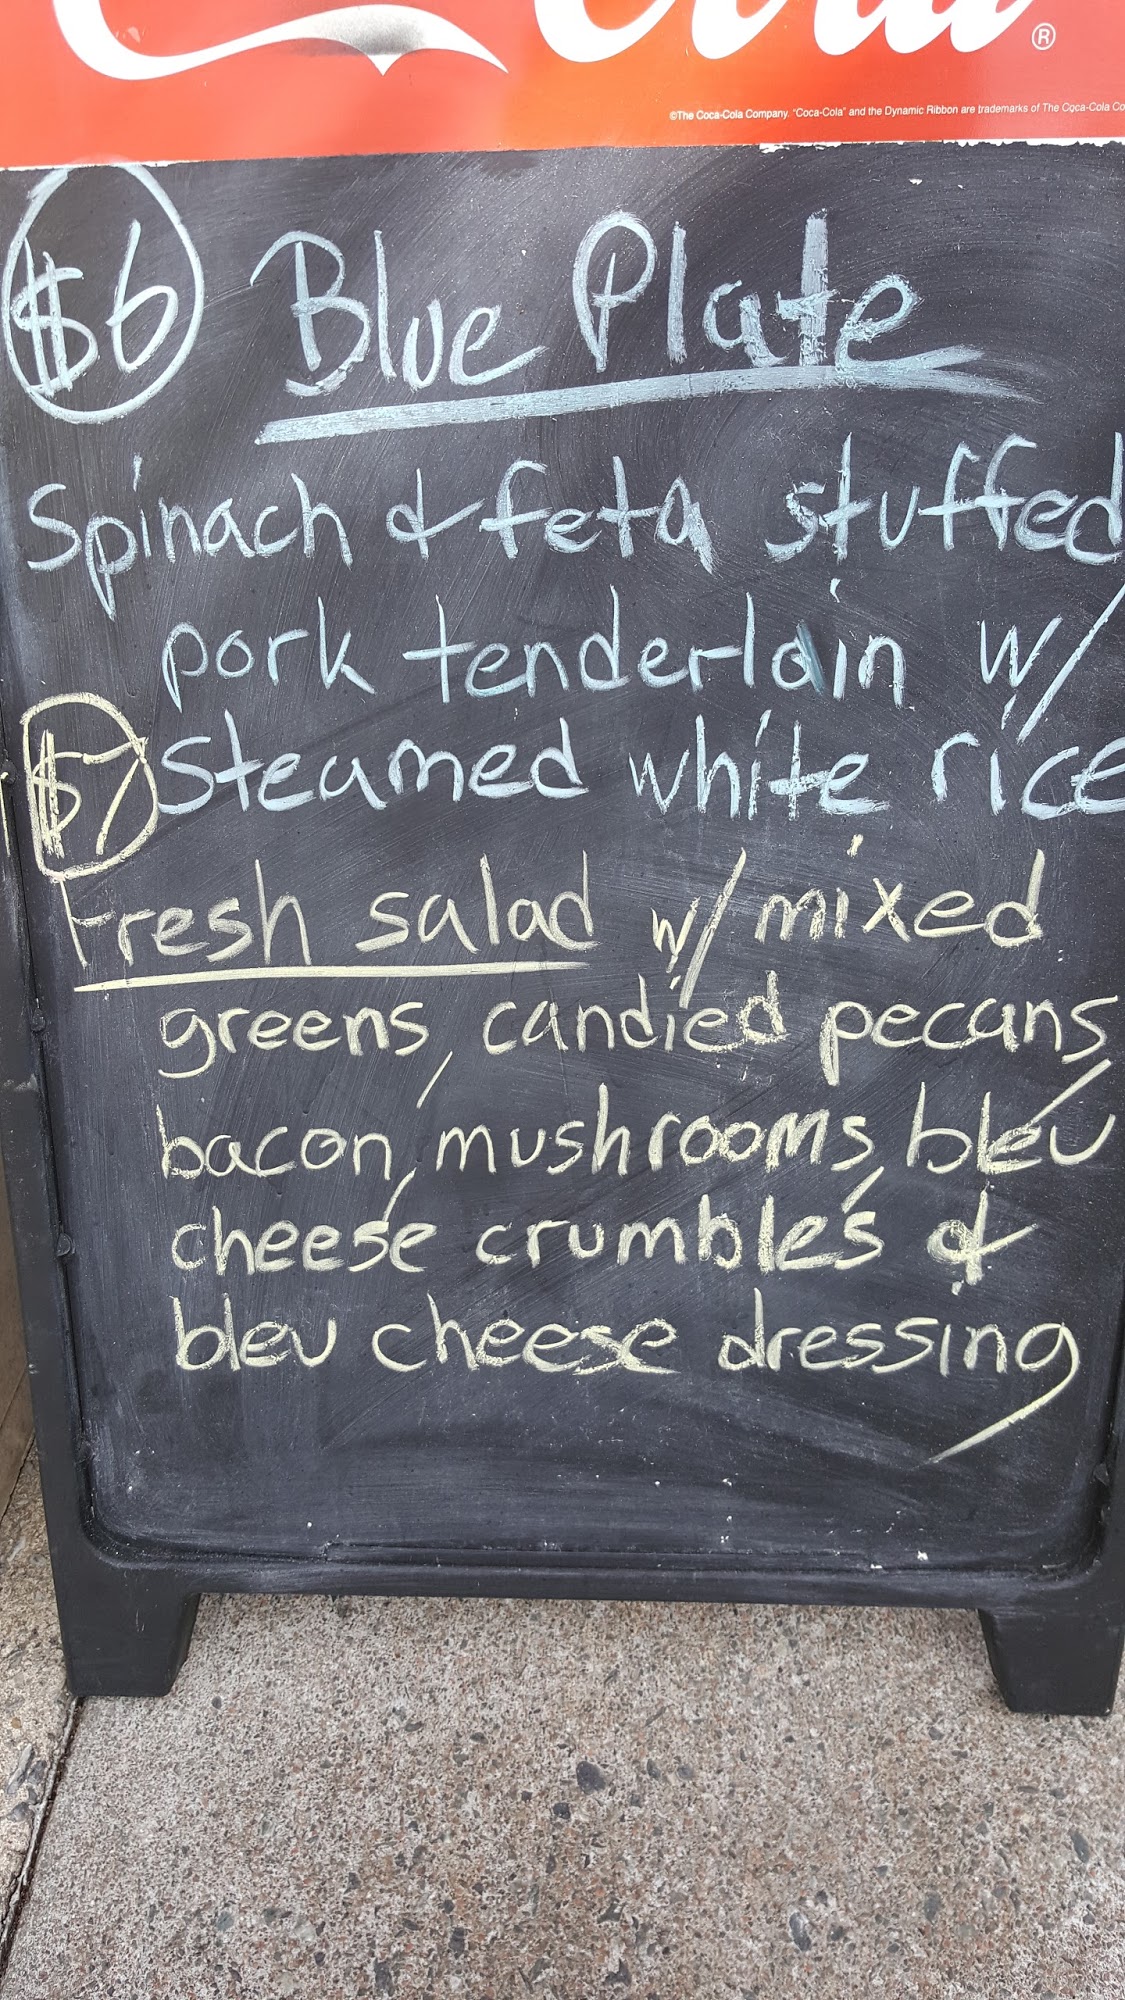 Cola ®
©The Coca-Cola Company. "Coca-Cola" and the Dynamic Ribbon are trademarks of The Coca-Cola Co
$6 Blue Plate
Spinach & feta stuffed
pork tenderlain w/
$7 steamed white rice
Fresh salad w/ mixed
greens, candied pecans,
bacon, mushrooms, bleu
cheese crumbles &
bleu cheese dressing